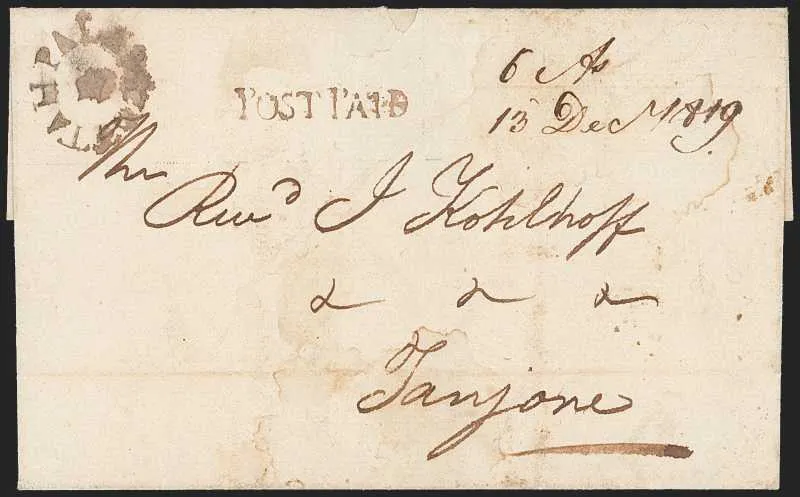 POST PAID
6 As
13 Dec 1819
The
Revd J Kohlhoff
& & &
Tanjore